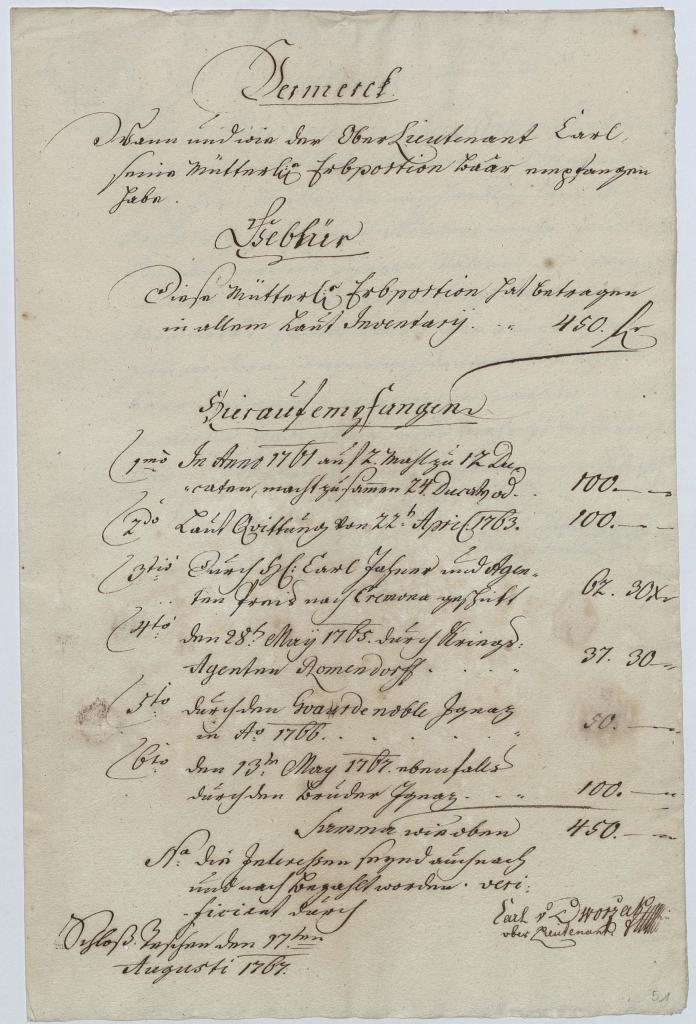 Vermerck
Wann und wie der Ober Lieutenant Carl,
seine Mütterliche Erbportion baar empfangen
habe.
Gebhür
Diese Mütterliche Erbportion hat betragen
in allem Laut Inventarij. . „ 450. fr
Hierauf empfangen
1mo In Anno 1761 auf 2. Mahl zu 12 Du
caten, macht zusamen 24 Ducaten od. . 100.—
2do Laut Quittung von 22th April 1763. 100.—
3tio Durch H: Carl und Agen-
ten nach Cremona geschickt 62. 30 Xr
4to den 28th May 1765. durch Kriegs-
Agenten Romendorff. . . „ 37. 30
5to durch den Guardenoble Ignaz
in Ao 1766. . . . . . „ 50.—
6to den 13th May 1767. ebenfalls
durch den Bruder Ignaz. . „ 100.—
Summa wie oben 450.—
Na die Interessen seynd auch nach
und nach bezahlt worden. veri-
ficirt durch
Carl v Dworzak
ober Lieutenant
Schloß Teschen den 17ten
Augusti 1767.
51